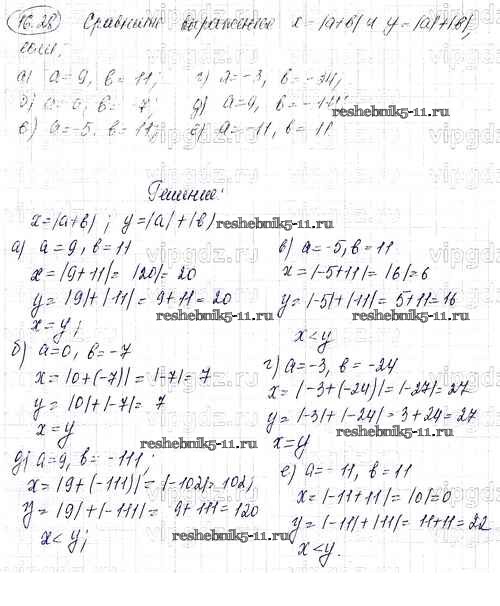 16.28 Сравнить выражение x=|a+b| и y=|a|+|b|,
если:
а) a=9, b=11; г) a=-3, b=-34;
б) a=0, b=-7; д) a=9, b=-111;
в) a=-5. b=11; е) a=-11, b=11
reshebnik5-11.ru
Решение:
x=|a+b| ; y=|a|+|b|
reshebnik5-11.ru
а) a=9, b=11
x=|9+11|= |20|= 20
y= |9|+|11|= 9+11= 20
x=y;
б) a=0, b=-7
x= |0+(-7)| = |-7|= 7
y= |0|+|-7|= 7
x=y
д) a=9, b=-111;
x= |9+(-111)|= |-102|= 102;
y= |9|+|-111|= 9+111= 120
x<y;
в) a=-5, b=11
x= |-5+11|= |6|=6
y= |-5|+|11|= 5+11= 16
reshebnik5-11.ru
x<y
г) a=-3, b=-24
x= |-3+(-24)|=|-27|= 27
y= |-3|+|-24|= 3+24= 27
reshebnik5-11.ru
x=y
е) a=-11, b=11
x= |-11+11|= |0|=0
y= |-11|+|11|= 11+11=22
x<y.
reshebnik5-11.ru
vipgdz.ru